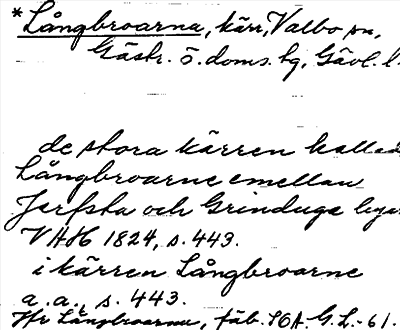 *Långbroarna, kärr, Valbo sn,
Gästr. ö. doms. hg, Gävl. l.
de stora kärren kallade
Långbroarne emellan
Jerfsta och Grinduga
VAH 1824, s. 443.
i kärren Långbroarne
a.a., s. 443.
Hr Långbroarna, fäb. SOA. G.L.-61.